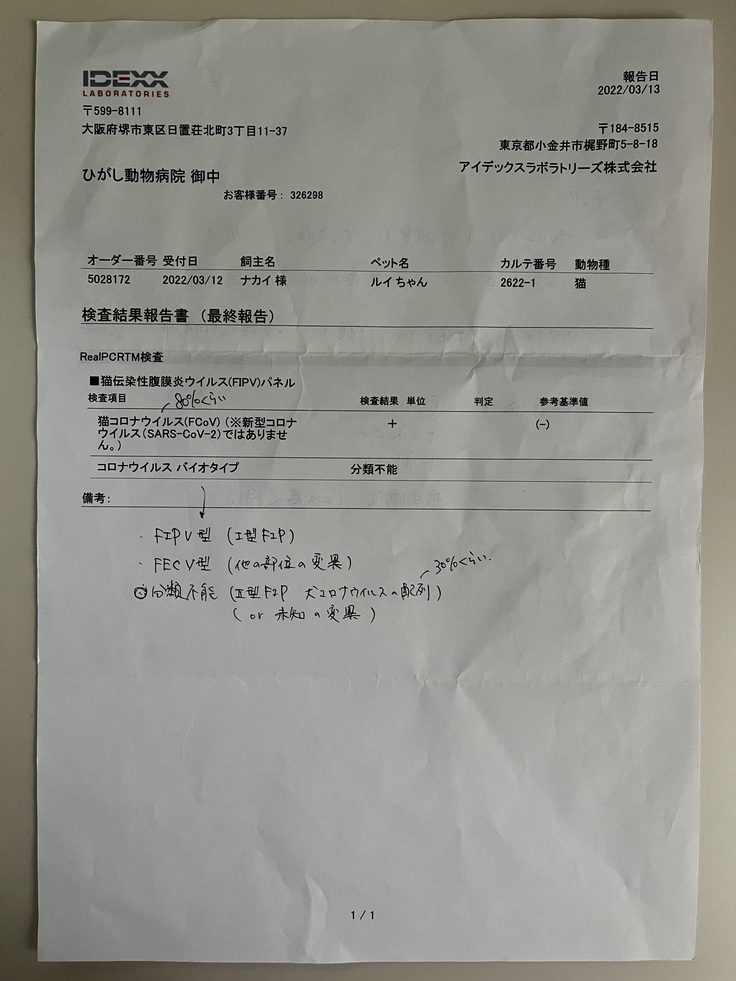 IDEXX
LABORATORIES
〒599-8111
大阪府堺市東区日置荘北町3丁目11-37
ひがし動物病院 御中
お客様番号： 326298
報告日
2022/03/13
〒184-8515
東京都小金井市梶野町5-8-18
アイデックスラボラトリーズ株式会社
オーダー番号 受付日 飼主名 ペット名 カルテ番号 動物種
5028172 2022/03/12 ナカイ 様 ルイ ちゃん 2622-1 猫
検査結果報告書 （最終報告）
RealPCRTM検査
■猫伝染性腹膜炎ウイルス(FIPV)パネル
検査項目 80%くらい 検査結果 単位 判定 参考基準値
猫コロナウイルス(FCoV) (※新型コロナ + (-)
ウイルス(SARS-CoV-2)ではありませ
ん。)
コロナウイルス バイオタイプ 分類不能
備考:
・FIPV型 (I型FIP)
・FECV型 (他の部位の変異)
30%くらい.
分類不能 (II型FIP 犬コロナウイルスの配列)
(or 未知の変異)
1 / 1